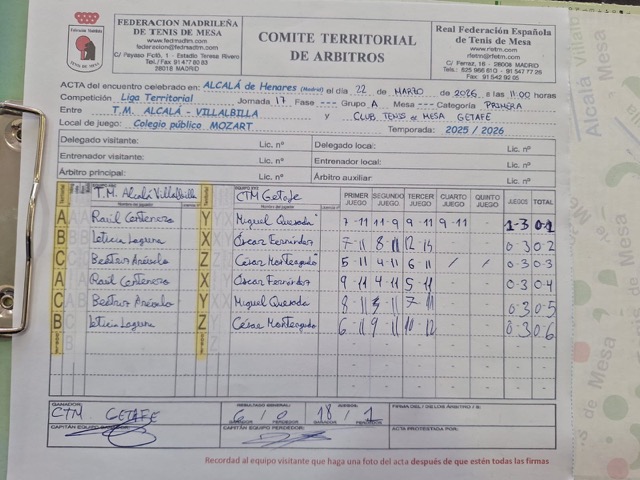 FEDERACION MADRILEÑA
DE TENIS DE MESA
www.fedmadtm.com
federacion@fedmadtm.com
C/ Payaso Fofó, 1 - Estadio Teresa Rivero
28018 MADRID
COMITE TERRITORIAL
DE ARBITROS
Real Federación Española
de Tenis de Mesa
www.rfetm.com
C/ Ferraz, 16 - 28008 MADRID
Fax: 91 542 92 05
ACTA del encuentro celebrado en: ALCALÁ de Henares (Madrid) el día 22 de MARZO de 2026, a las 11:00 horas
Competición Liga Territorial Jornada 17 Fase --- Grupo A Mesa --- Categoría PRIMERA
Entre T.M. ALCALÁ - VILLALBILLA y CLUB TENIS DE MESA GETAFE
Local de juego: Colegio público MOZART Temporada: 2025 / 2026
Delegado visitante: Lic. nº Delegado local: Lic. nº
Entrenador visitante: Lic. nº Entrenador local: Lic. nº
Árbitro principal: Lic. nº Árbitro auxiliar: Lic. nº
T.M. Alcalá Villalbilla CTM Getafe PRIMER JUEGO SEGUNDO JUEGO TERCER JUEGO CUARTO JUEGO QUINTO JUEGO JUEGOS TOTAL
A Raúl Contenero Y Miguel Quesada 7-11 11-9 9-11 9-11 1-3 0-1
B Leticia Laguna X Óscar Fernández 7-11 8-11 0-3 0-2
C Beatriz Arévalo Z César Monteagudo 5-11 4-11 6-11 / / 0-3 0-3
A Raúl Contenero X Óscar Fernández 9-11 4-11 5-11 0-3 0-4
C Beatriz Arévalo Y Miguel Quesada 8-11 7-11 0-3 0-5
B Leticia Laguna Z César Monteagudo 6-11 9-11 10-12 0-3 0-6
GANADOR: RESULTADO GENERAL: JUEGOS: FIRMA DEL / DE LOS ÁRBITRO / S:
CTM GETAFE 6 / 0 18 / 1
GANADOR PERDEDOR GANADOR PERDEDOR
CAPITÁN EQUIPO CAPITÁN EQUIPO PERDEDOR: ACTA PROTESTADA POR:
Recordad al equipo visitante que haga una foto del acta después de que estén todas las firmas
Alcalá Villalbilla
Mesa
de Mesa
s de Mesa